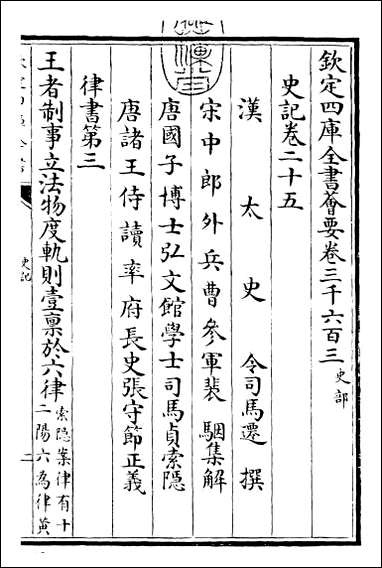 欽定四庫全書薈要卷三千六百三 史部
史記卷二十五
漢太史令司馬遷撰
宋中郎外兵曹參軍裴駰集解
唐國子博士弘文館學士司馬貞索隱
唐諸王侍讀率府長史張守節正義
律書第三
王者制事立法物度軌則壹禀於六律 索隱案律有十
二陽六為律黄
史記